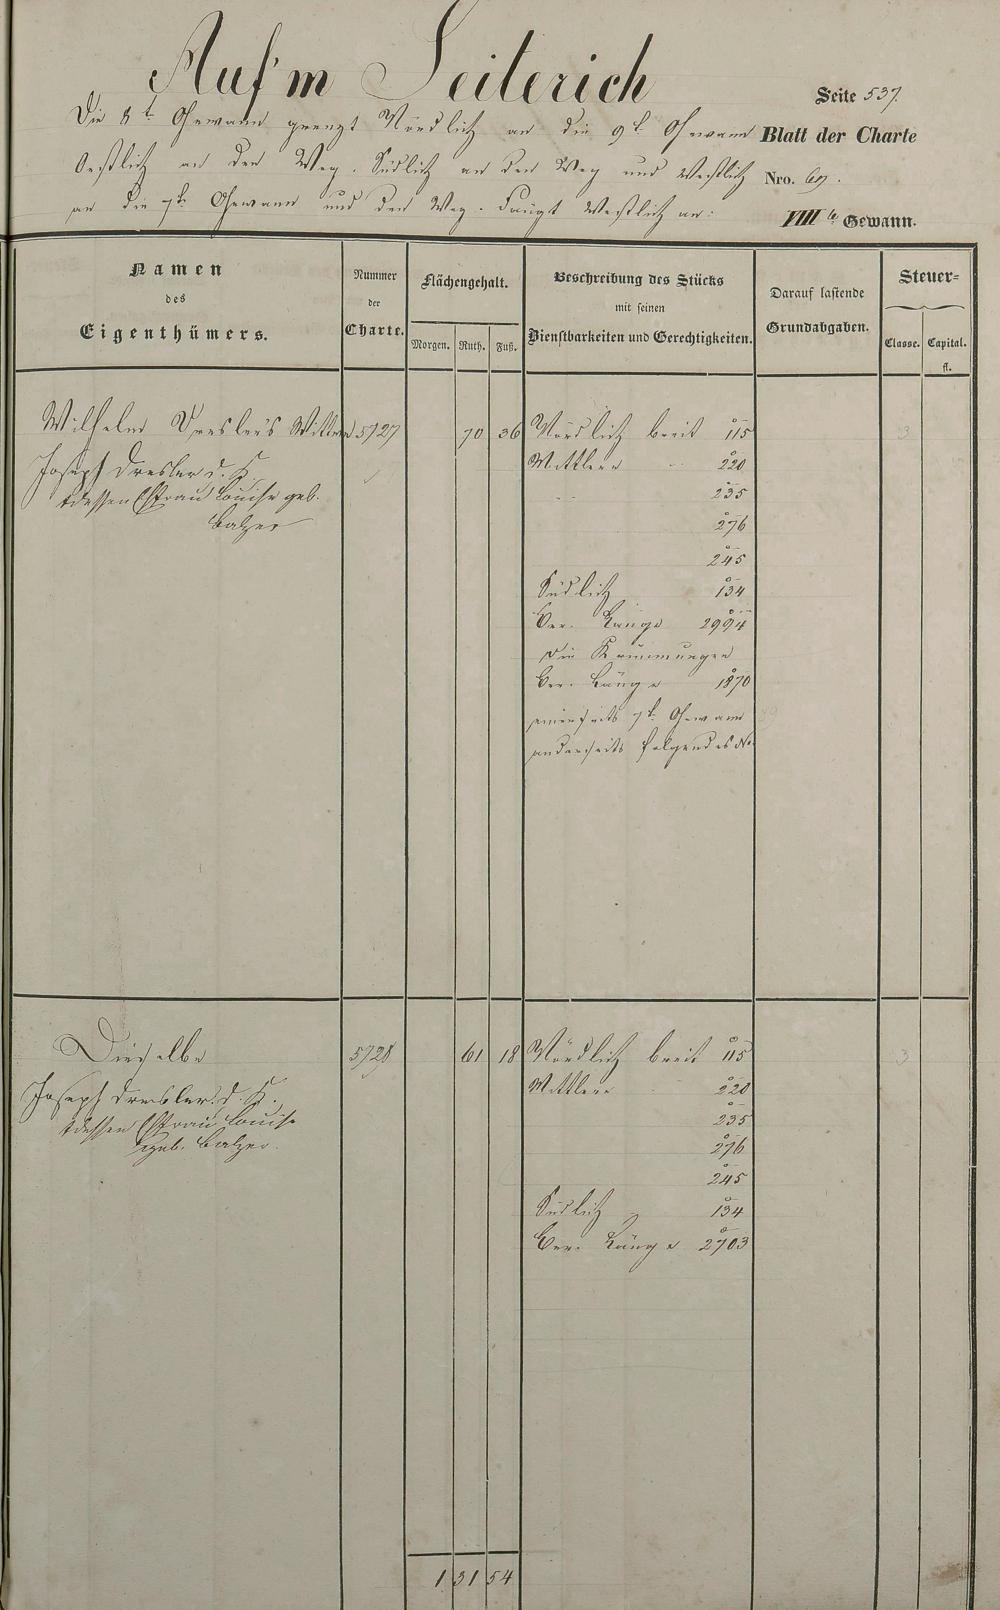 Auf'm Seiterich
Seite 537.
Die 8te Gewann grenzt Nördlich an die 9te Gewann
Blatt der Charte
Oestlich an den Weg. Südlich an den Weg und Westlich
Nro. 69.
an die 7te Gewann und den Weg. Fängt Westlich an:
VIII te Gewann.
Namen
des
Eigenthümers.
Nummer
der
Charte.
Flächengehalt.
Morgen. Ruth. Fuß.
Beschreibung des Stücks
mit seinen
Dienstbarkeiten und Gerechtigkeiten.
Darauf lastende
Grundabgaben.
Steuer-
Classe. Capital.
fl.
Wilhelm Dresler's Wittwe 5727 70 36 Nördlich breit 115 3
Joseph Dresler d. K. Mittlere 220
& dessen Ehefrau Louise geb. 235
Balzer 276
245
Südlich 134
Ver. Länge 2994
die Krümmungen
Ver. Länge 1870
einerseits 7te Gewann
anderseits folgendes No.
Dieselbe 5728 61 18 Nördlich breit 115 3
Joseph Dresler d. K. Mittlere 220
& dessen Ehefrau Louise 235
geb. Balzer. 276
245
Südlich 134
Ver. Länge 2703
1 31 54